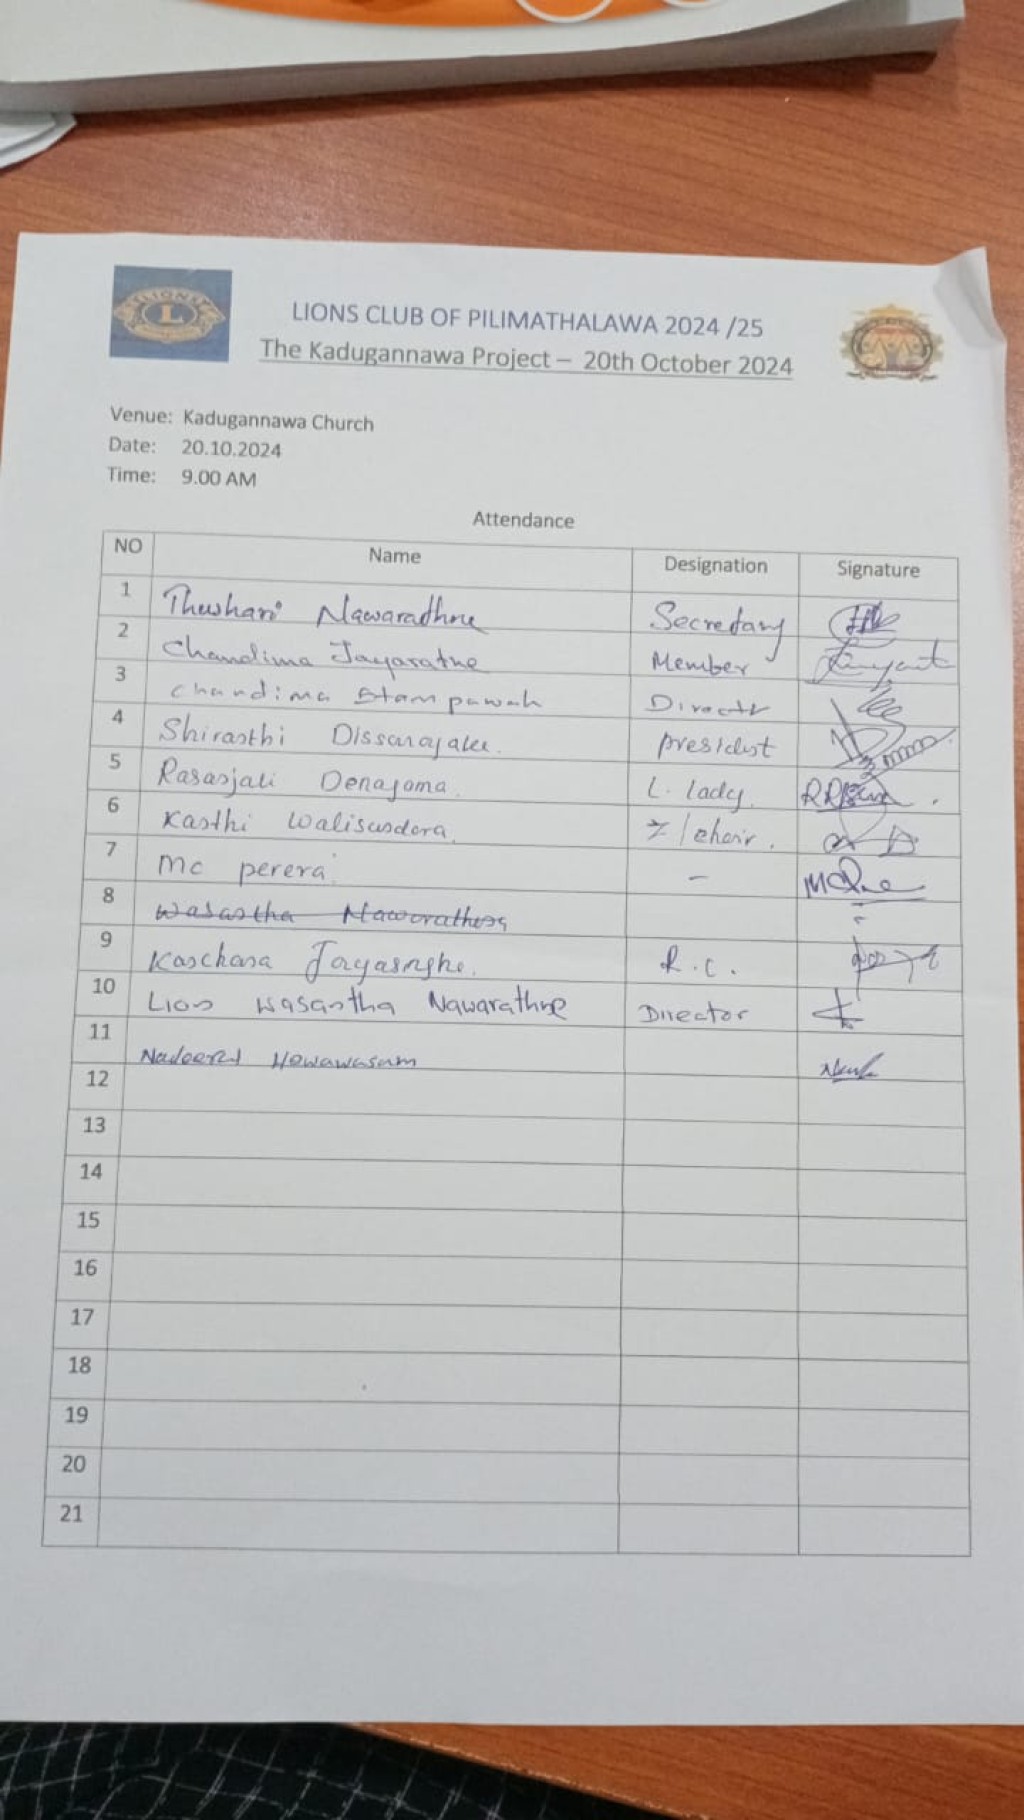 LIONS
L
LIONS CLUB OF PILIMATHALAWA 2024 /25
The Kadugannawa Project – 20th October 2024
Venue: Kadugannawa Church
Date: 20.10.2024
Time: 9.00 AM
Attendance
NO Name Designation Signature
1 Thushari Nawaradhne Secretary
2 Chandima Jayarathe Member
3 Chandima
4 Shirasthi Dissanayake. president
5 Rasanjali Denagama. L. lady.
6 Kasthi Walisundera Z/chair.
7 Mc perera -
8 Wasastha Nawarathna
9 Kaschasa Jayasinghe. R.C.
10 Lion Wasastha Nawarathne Director
11 Hewawasam
12
13
14
15
16
17
18
19
20
21